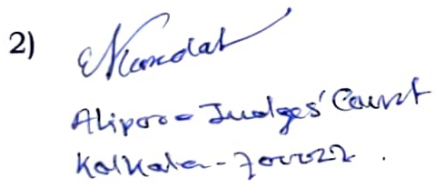 2)
Alipore Judges' Court
Kolkata - 700022.